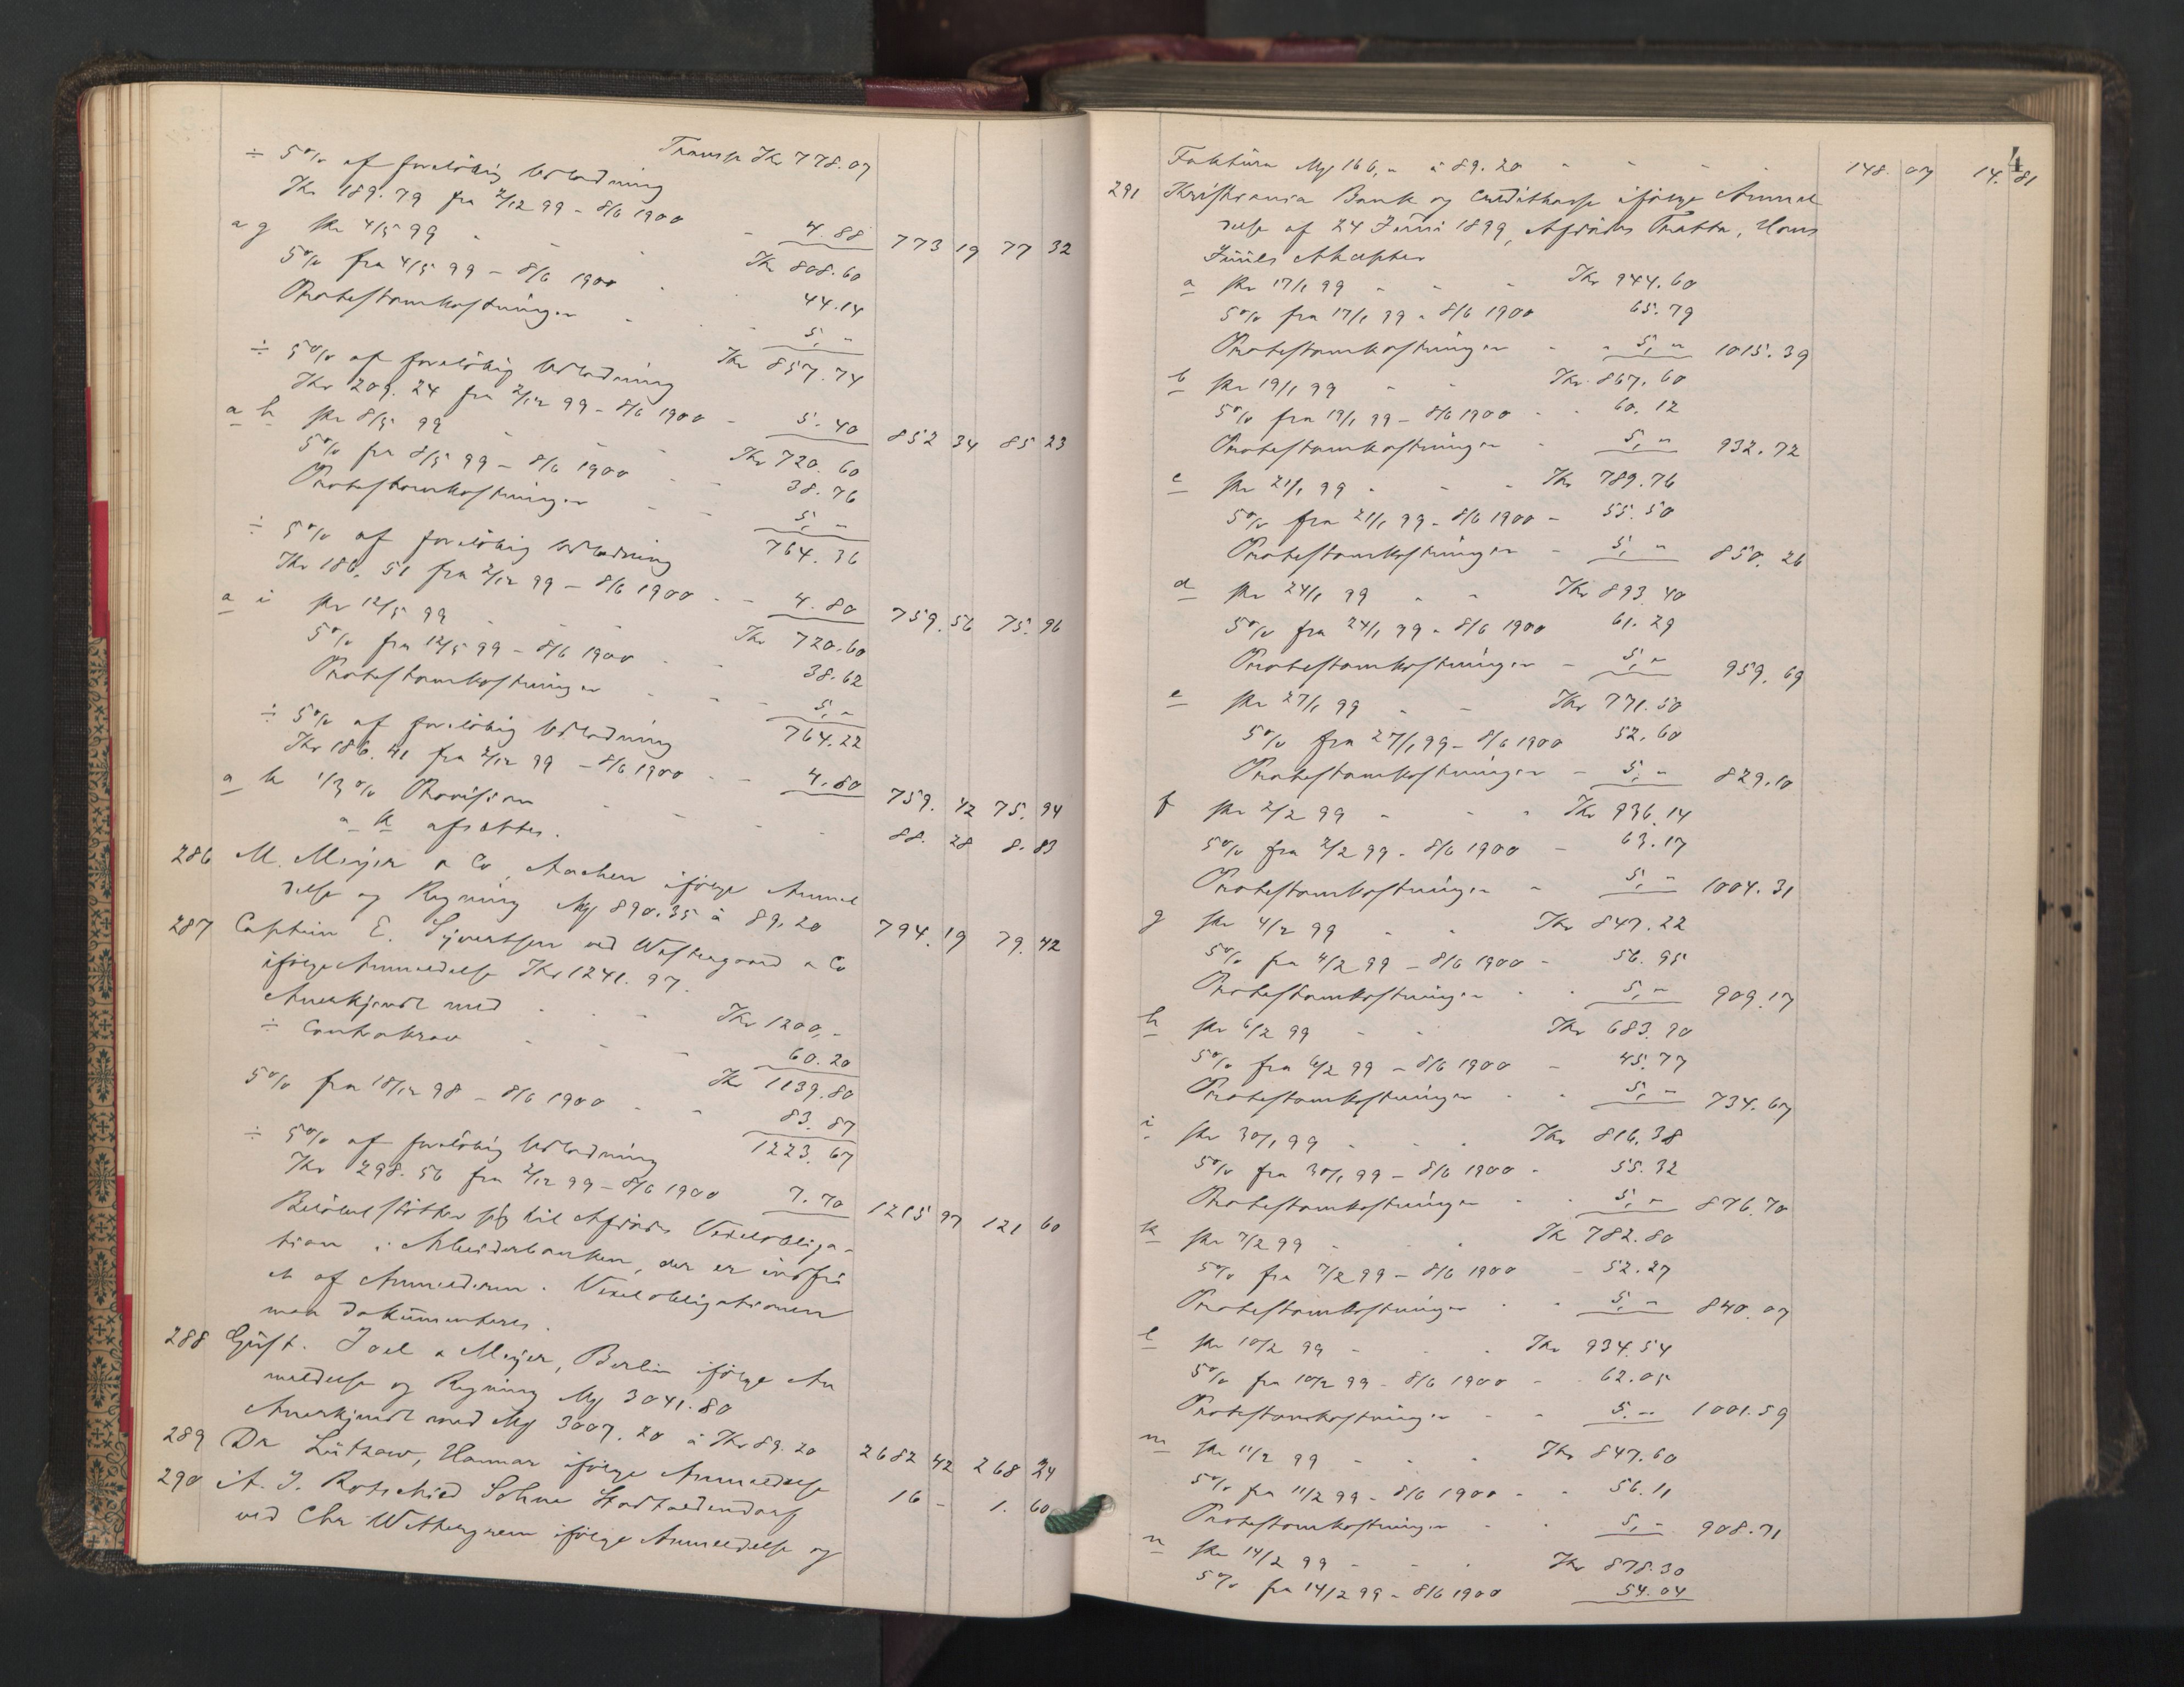 Transp Kr 778.07
÷ 5% af foreløbig Udlodning
Kr 189.79 fra 2/12 99 - 8/6 1900 - 4.88 773 19 77 32
a g pr 4/5 99 - - Kr 808.60
5% fra 4/5 99 - 8/6 1900 - - 44.14
Protestomkostninger - - 5,-
Kr 857.74
÷ 5% af foreløbig Udlodning
Kr 209.24 fra 2/12 99 - 8/6 1900 - 5.40 852 34 85 23
a h pr 8/5 99 - - - Kr 720.60
5% fra 8/5 99 - 8/6 1900 - - 38.76
Protestomkostninger - - 5,-
764.36
÷ 5% af foreløbig Udlodning
Kr 186,51 fra 2/12 99 - 8/6 1900 - - 4.80 759.56 75.96
a i pr 12/5 99 - - - Kr 720.60
5% fra 12/5 99 - 8/6 1900 - - 38.62
Protestomkostninger - - 5,-
764.22
÷ 5% af foreløbig Udlodning
Kr 186.41 fra 2/12 99 - 8/6 1900 - - 4.80 759.42 75.94
a k 1/3 % Provision - - - - 88.28 8.83
a k afsættes.
286 M. Meyer & Co, Aachen ifølge Anmel
delse og Regning Mk 890.35 à 89,20 794.19 79.42
287 Captein E. Syvertsen ved Westergaard & Co
ifølge Anmeldelse Kr 1241.97.
Anerkjendt med - - - Kr 1200,-
÷ Contrakrav - - - 60.20
Kr 1139.80
5% fra 18/12 98 - 8/6 1900 - - 83.87
1223.67
÷ 5% af foreløbig Udlodning
Kr 298.56 fra 2/12 99 - 8/6 1900 7.70 1215 97 121 60
Beløbet støtter sig til Afdøde Vexelobliga-
tion i Arbeiderbanken, der er indfri
et af Anmelderen. Vexelobligationen
maa dokumenteres.
288 Gust. Joel & Meyer, Berlin ifølge An
meldelse og Regning Mk 3041.80
Anerkjendt med Mk 3007.20 à Kr 89.20 2682 42 268 24
289 Dr Lützow, Hamar ifølge Anmeldelse 16 - 1.60
290 A. J. Rotschild Söhne Stadtoldendorf
ved Chr Wettergreen ifølge Anmeldelse og
4
Faktura Mk 166,- à 89.20 - - - - 148.07 14.81
291 Kristiania Bank og Creditkasse ifølge Anmel
delse af 24 Juni 1899, Afdødes Tratta, Hans
Juuls Akcepter
a pr 17/1 99 - - - Kr 944.60
5% fra 17/1 99 - 8/6 1900 65.79
Protestomkostninger - - 5,- 1015.39
b pr 19/1 99 - - Kr 867.60
5% fra 19/1 99 - 8/6 1900 - - 60.12
Protestomkostninger - 5,- 932.72
c pr 21/1 99 - - - Kr 789.76
5% fra 21/1 99 - 8/6 1900 - 55.50
Protestomkostninger - 5,- 850.26
d pr 24/1 99 - - Kr 893.40
5% fra 24/1 99 - 8/6 1900 61.29
Protestomkostninger - 5,- 959.69
e pr 27/1 99 - - Kr 771.50
5% fra 27/1 99 - 8/6 1900 52.60
Protestomkostninger - 5,- 829.10
f pr 2/2 99 - - - Kr 936.14
5% fra 2/2 99 - 8/6 1900 - 63.17
Protestomkostninger - 5,- 1004.31
g pr 4/2 99 - - Kr 847.22
5% fra 4/2 99 - 8/6 1900 - 56.95
Protestomkostninger - - 5,- 909.17
h pr 6/2 99 - - Kr 683.90
5% fra 6/2 99 - 8/6 1900 - 45.77
Protestomkostninger - - 5,- 734.67
i pr 30/1 99 - - - Kr 816.38
5% fra 30/1 99 - 8/6 1900 - 55.32
Protestomkostninger - - 5,- 876.70
k pr 7/2 99 - - - Kr 782.80
5% fra 7/2 99 - 8/6 1900 - 52.27
Protestomkostninger - - 5,- 840.07
l pr 10/2 99 - - - Kr 934.54
5% fra 10/2 99 - 8/6 1900 - - 62.05
Protestomkostninger - - 5.- 1001.59
m pr 11/2 99 - - - Kr 847.60
5% fra 11/2 99 - 8/6 1900 - - 56.11
Protestomkostninger - - 5,- 908.71
n pr 14/2 99 - - - Kr 878.30
5% fra 14/2 99 - 8/6 1900 54.04